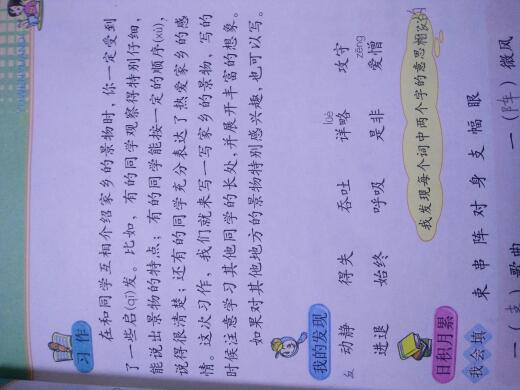 习作
在和同学互相介绍家乡的景物时，你一定受到
了一些启(qǐ)发。比如，有的同学观察得特别仔细，
能说出景物的特点；有的同学能按一定的顺序(xù)，
说得很清楚；还有的同学充分表达了热爱家乡的感
情。这次习作，我们就来写一写家乡的景物，写的
时候注意学习其他同学的长处，并展开丰富的想象。
如果对其他地方的景物特别感兴趣，也可以写。
我的发现
lüè zēng
动静 得失 吞吐 详略 攻守
进退 始终 呼吸 是非 爱憎
我发现每个词中两个字的意思相
日积月累
我会填
束 串 阵 对 身 支 幅 眼
一（支）歌曲 一（阵）微风